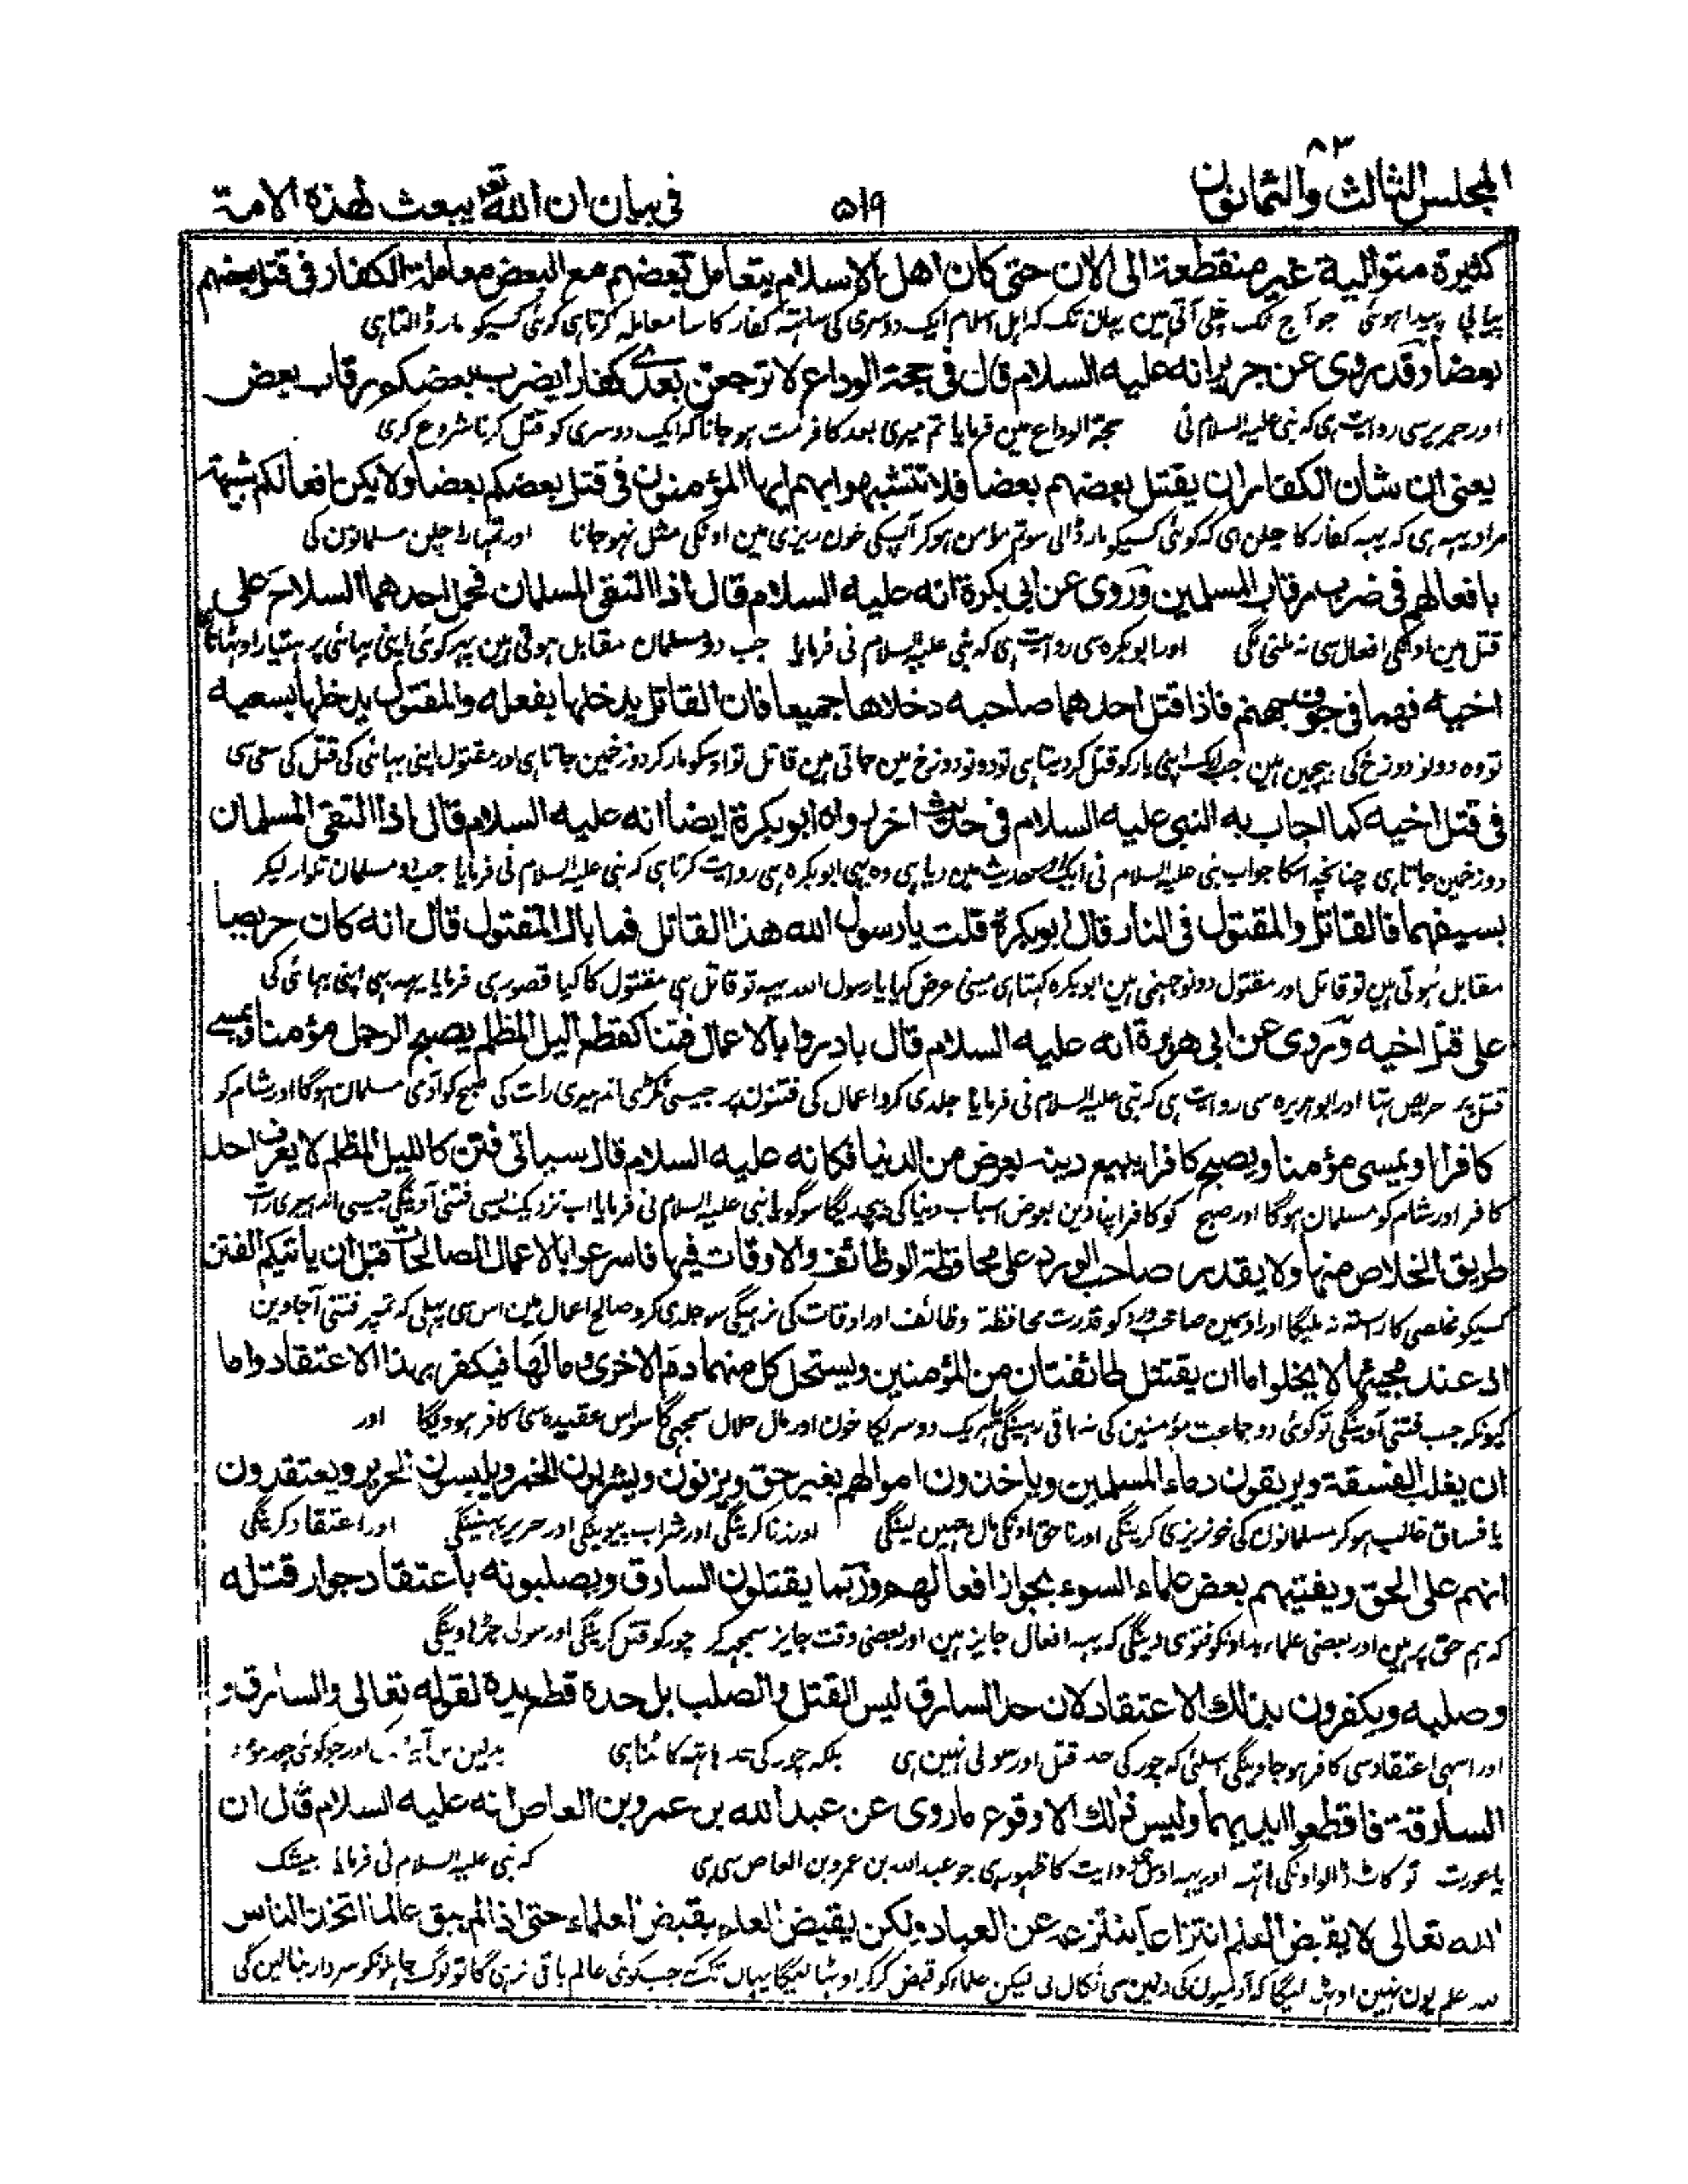 ٨٣
المجلس الثالث والثمانون ٥١٩ فی بیان ان الله تع یبعث لهذه الامة
كثيرة متوالية غير منقطعة الى الان حتى كان اهل الاسلام يتعامل بعضهم مع البعض معاملة الكفار فى قتل بعضهم
پیاپی پیدا ہوئی جو آج تک چلی آتی ہین یہان تک کہ اہل اسلام ایک دوسری کی ساتہہ کفار کا سا معاملہ کرتا ہی کوئی کسیکو مار ڈالتا ہی
بعضا وقد روى عن جرير انه عليه السلام قال فى حجة الوداع لا ترجعن بعدى كفارا يضرب بعضكم رقاب بعض
اور جریر سی روایت ہی کہ نبی علیہ السلام نی حجۃ الوداع مین فرمایا تم میری بعد کافر مت ہو جانا کہ ایک دوسری کو قتل کرنا شروع کری
يعنى ان شأن الكفار ان يقتل بعضهم بعضا فلا تتشبهوا بهم ايها المؤمنون فى قتل بعضكم بعضا ولا يكن افعالكم شبيهة
مراد یہہ ہی کہ یہہ کفار کا چلن ہی کہ کوئی کسیکو مار ڈالی سو تم مؤمن ہو کر آپسکی خون ریزی مین اونکی مثل نہو جانا اور تمہارا چلن مسلمانون کی
بافعالهم فى ضرب رقاب المسلمين وروى عن ابى بكرة انه عليه السلام قال اذا التقى المسلمان فحمل احدهما السلاح على
قتل مین اونکی افعال سی نہ ملنی لگی اور ابو بکرہ سی روایت ہی کہ نبی علیہ السلام نی فرمایا جب دو مسلمان مقابل ہوتی ہین پہر کوئی اپنی بہائی پر ہتیار اوٹہاتا
اخيه فهما فى جوف جهنم فاذا قتل احدهما صاحبه دخلاها جميعا فان القاتل يدخلها بفعله والمقتول يدخلها بسعيه
تو وہ دونو دوزخ کی بیچمین ہین جب ایک اپنی یار کو قتل کر دیتا ہی تو دونو دوزخ مین جاتی ہین قاتل تو اوسکو مار کر دوزخمین جاتا ہی اور مقتول اپنی بہائی کی قتل کی سعی سی
فى قتل اخيه كما اجاب به النبى عليه السلام فى حديث اخر رواه ابو بكرة ايضا انه عليه السلام قال اذا التقى المسلمان
دوزخمین جاتا ہی چنانچہ اسکا جواب نبی علیہ السلام نی ایک اور حدیث مین دیا ہی وہ بہی ابو بکرہ ہی روایت کرتا ہی کہ نبی علیہ السلام نی فرمایا جب دو مسلمان تلوار لیکر
بسيفهما فالقاتل والمقتول فى النار قال ابو بكرة قلت يا رسول الله هذا القاتل فما بال المقتول قال انه كان حريصا
مقابل ہوتی ہین تو قاتل اور مقتول دونو جہنمی ہین ابو بکرہ کہتا ہی مینی عرض کیا یا رسول اللہ یہہ تو قاتل ہی مقتول کا کیا قصور ہی فرمایا یہہ بہی اپنی بہائی کی
على قتل اخيه وروى عن ابى هريرة انه عليه السلام قال بادروا بالاعمال فتنا كقطع الليل المظلم يصبح الرجل مؤمنا ويمسى
قتل پر حریص تہا اور ابو ہریرہ سی روایت ہی کہ نبی علیہ السلام نی فرمایا جلدی کرو اعمال کی فتنون پر جیسی ٹکڑی اندہیری رات کی صبح کو آدمی مسلمان ہوگا اور شام کو
كافرا او يمسى مؤمنا ويصبح كافرا يبيع دينه بعرض من الدنيا فكانه عليه السلام قال سياتى فتن كالليل المظلم لا يعرف احد
کافر اور شام کو مسلمان ہوگا اور صبح کو کافر اپنا دین بعوض اسباب دنیا کی بیچ دیگا سو گویا نبی علیہ السلام نی فرمایا اب نزدیک ایسی فتنی آوینگی جیسی اندہیری رات
طريق الخلاص منها ولا يقدر صاحب الورد على محافظة الوظائف والاوقات فيها فاسرعوا بالاعمال الصالحات قبل ان ياتيكم الفتن
کسیکو مخلصی کا راستہ نہ ملیگا اور اوسمین صاحب ورد کو قدرت محافظة وظائف اور اوقات کی نرہیگی سو جلدی کرو صالح اعمال مین اس سی پہلی کہ تمپر فتنی آجاوین
اذ عند مجيئها لا يخلوا اما ان يقتتل طائفتان من المؤمنين ويستحل كل منهما دم الاخرى ومالها فيكفر بهذا الاعتقاد واما
کیونکہ جب فتنی آوینگی تو کوئی دو جماعت مؤمنین کی نہ باقی رہینگی ہر یک دوسریکا خون اور مال حلال سمجہیگا سو اس عقیدہ سی کافر ہوویگا اور
ان يغلب الفسقة ويريقون دماء المسلمين وياخذون اموالهم بغير حق ويزنون ويشربون الخمر ويلبسون الحرير ويعتقدون
یا فساق غالب ہو کر مسلمانون کی خونریزی کرینگی اور ناحق اونکی مال چہین لینگی اور زنا کرینگی اور شراب پیوینگی اور حریر پہنینگی اور اعتقاد کرینگی
انهم على الحق ويفتيهم بعض علماء السوء بجواز افعالهم وربما يقتلون السارق ويصلبونه باعتقاد جواز قتله
کہ ہم حق پر ہین اور بعضی علماء بد اونکو فتوی دینگی کہ یہہ افعال جایز ہین اور بعضی وقت جایز سمجہہ کر چور کو قتل کرینگی اور سولی چڑہاوینگی
وصلبه ويكفرون بذلك الاعتقاد لان حد السارق ليس القتل والصلب بل حده قطع يده لقوله تعالى والسارق و
اور اسہی اعتقاد سی کافر ہو جاوینگی اسلئی کہ چور کی حد قتل اور سولی نہین ہی بلکہ چور کی حد ہاتہہ کاٹنا ہی بدلیل اس آیۃ اور جو کوئی چور مرد
السارقة فاقطعوا ايديهما وليس ذلك الا وقوع ما روى عن عبد الله بن عمرو بن العاص انه عليه السلام قال ان
یا عورت تو کاٹ ڈالو اونکی ہاتہہ اور یہہ اوس روایت کا ظہور ہی جو عبد اللہ بن عمرو بن العاص سی ہی کہ نبی علیہ السلام نی فرمایا بیشک
الله تعالى لا يقبض العلم انتزاعا ينتزعه عن العباد ولكن يقبض العلم بقبض العلماء حتى اذا لم يبق عالما اتخذ الناس
علم یون نہین اوٹہا لیگا کہ آدمیون کی دلین سی نکال لی لیکن علماء کو قبض کر کر اوٹہا لیگا یہان تک کہ جب کوئی عالم باقی نرہی گا تو لوگ جاہلونکو سردار بنا لین گی